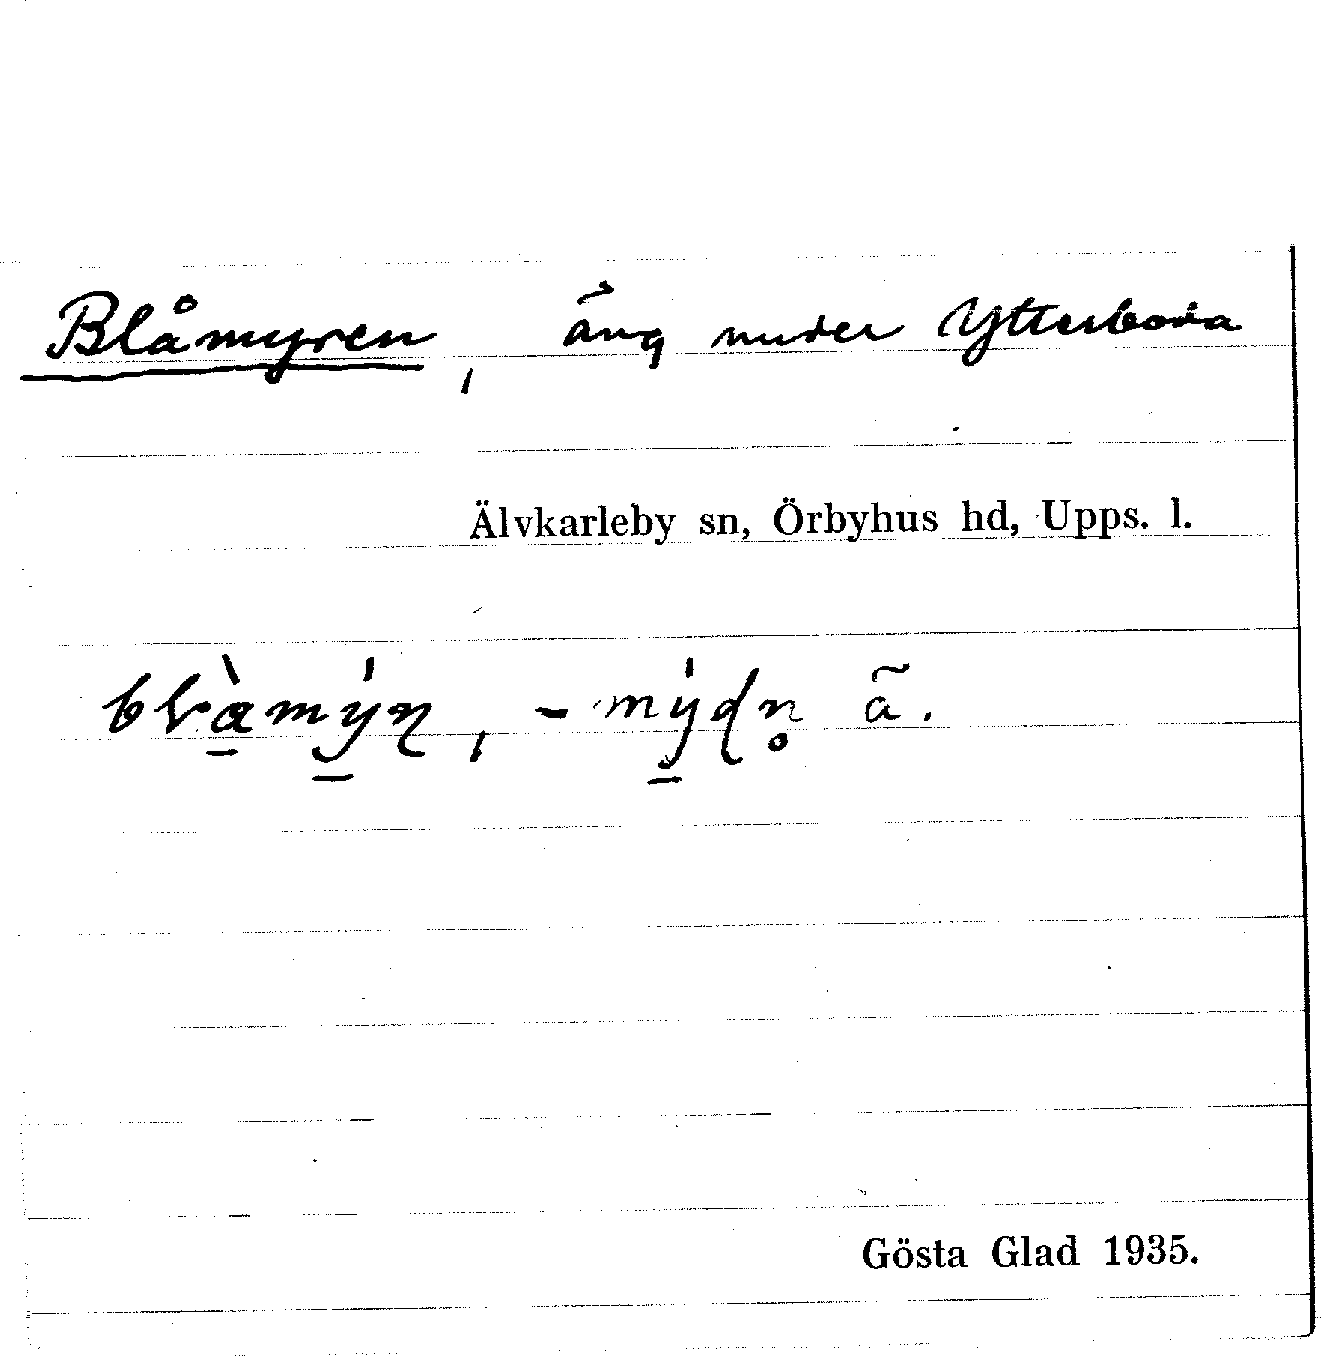 Blåmyren, äng under Ytterboda
Älvkarleby sn, Örbyhus hd, Upps. l.
Gösta Glad 1935.